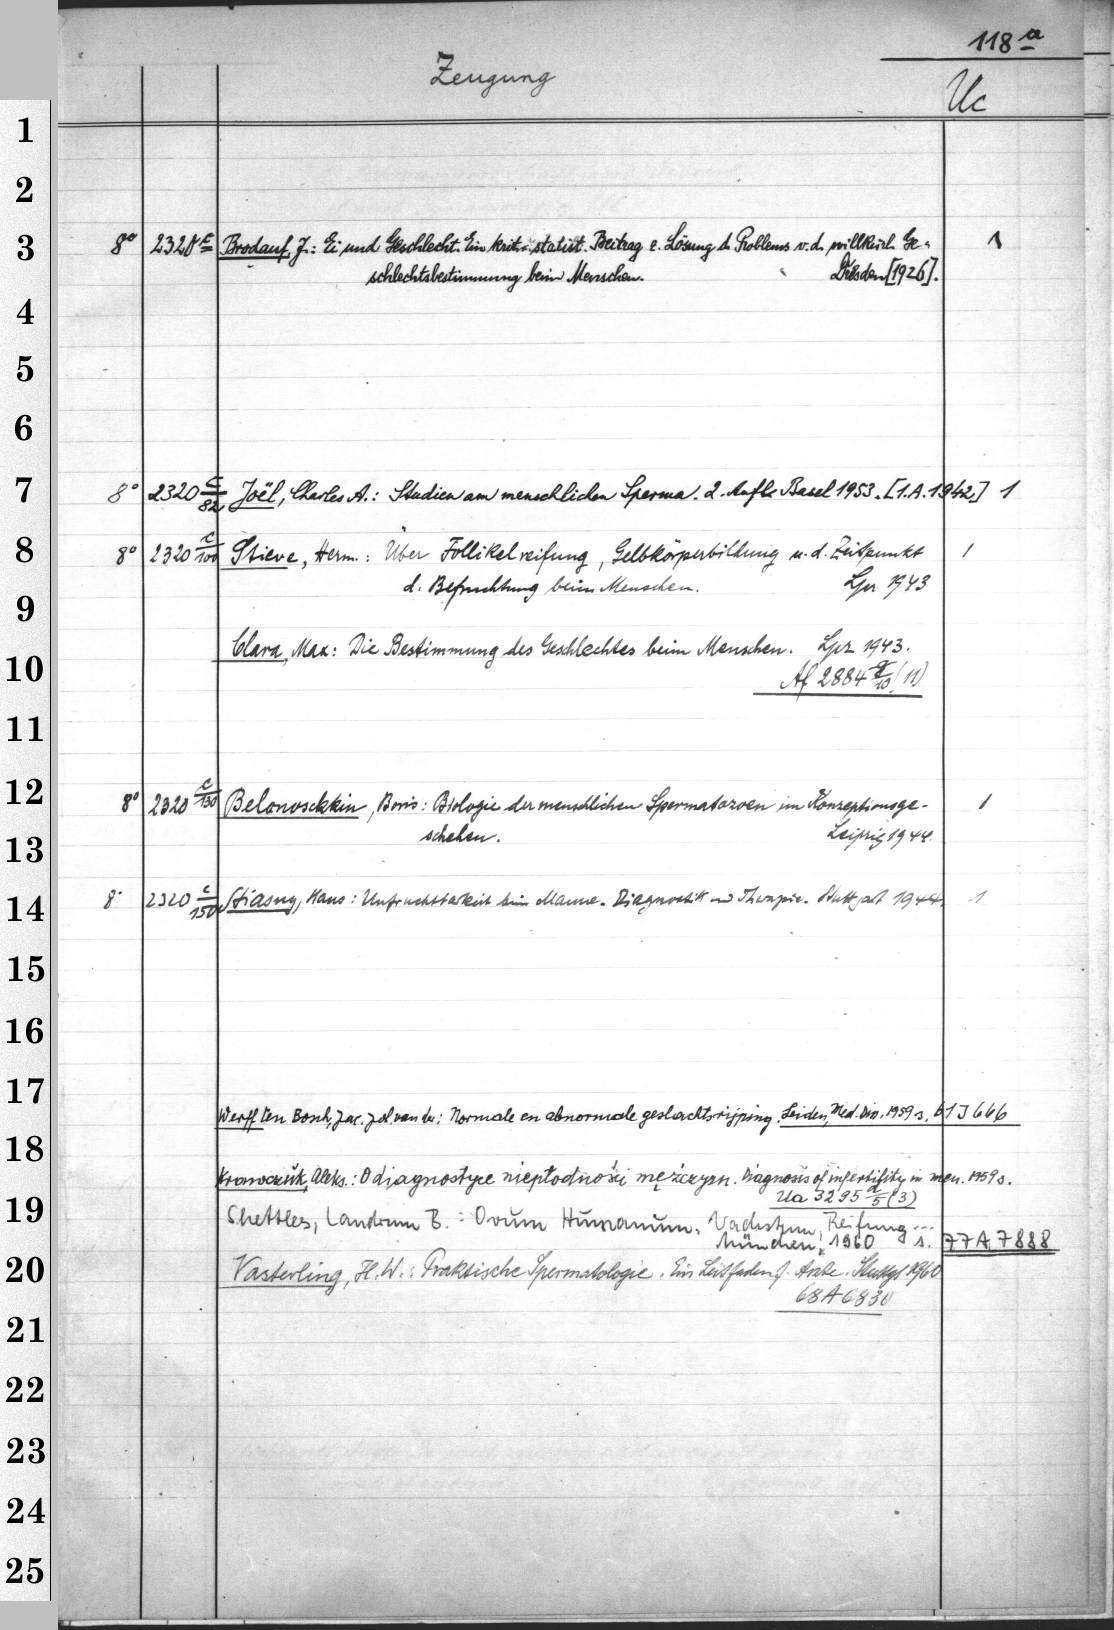 118 a
Zeugung
Uc
1
2
3 8° 2320 c Brodauf, J.: Ei und Geschlecht. Ein krit.-statist. Beitrag z. Lösung d. Problems v. d. willkürl. Ge- 1
schlechtsbestimmung beim Menschen. Dresden [1926].
4
5
6
7 8° 2320 c/82 Joël, Charles A.: Studien am menschlichen Sperma. 2. Aufl. Basel 1953. [1.A. 1942] 1
8 8° 2320 c/100 Stieve, Herm.: Über Follikelreifung, Gelbkörperbildung u. d. Zeitpunkt 1
d. Befruchtung beim Menschen. Lpz 1943
9
Clara, Max: Die Bestimmung des Geschlechtes beim Menschen. Lpz 1943.
10 Af 2884 /10 (11)
11
12 8° 2320 c/130 Belonoschkin, Boris: Biologie der menschlichen Spermatozoen im Konzeptionsge- 1
13 schehen. Leipzig 1944.
14 8° 2320 c/150 Stiasny, Hans: Unfruchtbarkeit beim Manne. Diagnostik und Therapie. Stuttgart 1944. 1
15
16
17
Werff ten Bosch, Jac. Jol. van der: Normale en abnormale geslachtsrijping. Leiden, Med. Diss. 1959 s. 61 J 666
18
Krawczuk, Aleks.: O diagnostyce niepłodności mężczyzn. Diagnosis of infertility in men. 1959 s.
Ua 3295 d/5 (3)
19 Shettles, Landrum B.: Ovum Humanum. Wachstum, Reifung ...
München, 1960 s. 77 A 7888
20 Vasterling, H. W.: Praktische Spermatologie. Ein Leitfaden f. Ärzte. Stuttgt 1960
68 A 6830
21
22
23
24
25